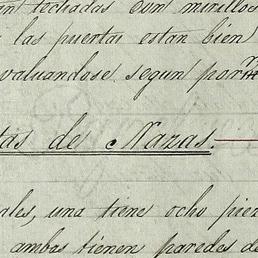 an techadas con morillos
las puertas estan bien
valuandose segun por
tas de Nazas.
les, una tiene ocho pie
ambas tienen paredes de